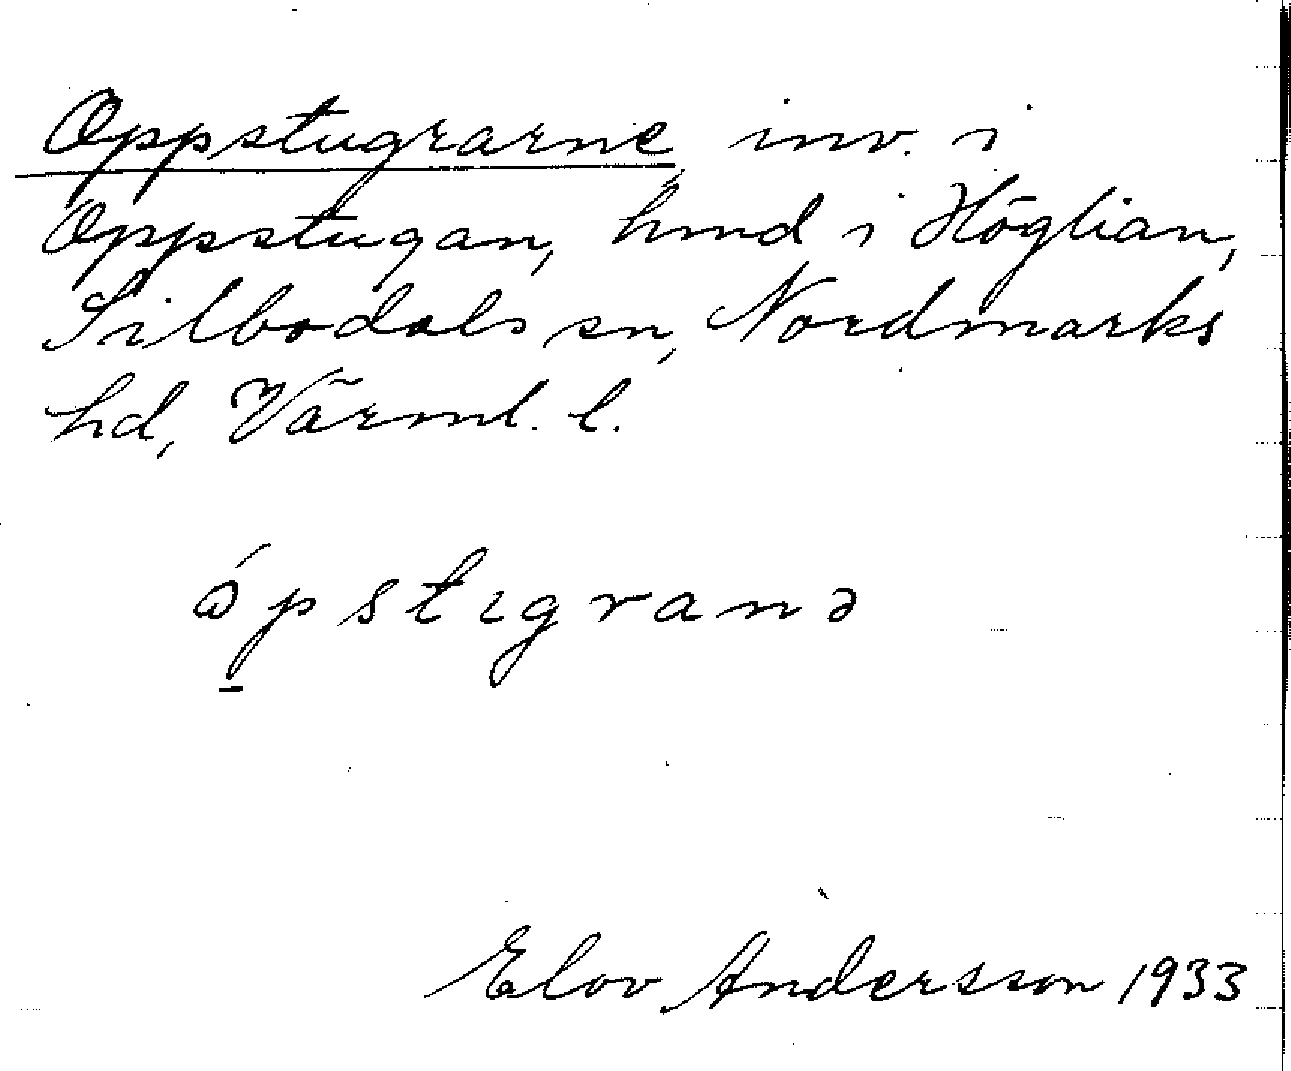 Oppstugrarne, inv. i
Oppstugan, hmd i Höglian,
Silbodals sn, Nordmarks
hd, Värml. l.
ópstıgranə
Elov Andersson 1933